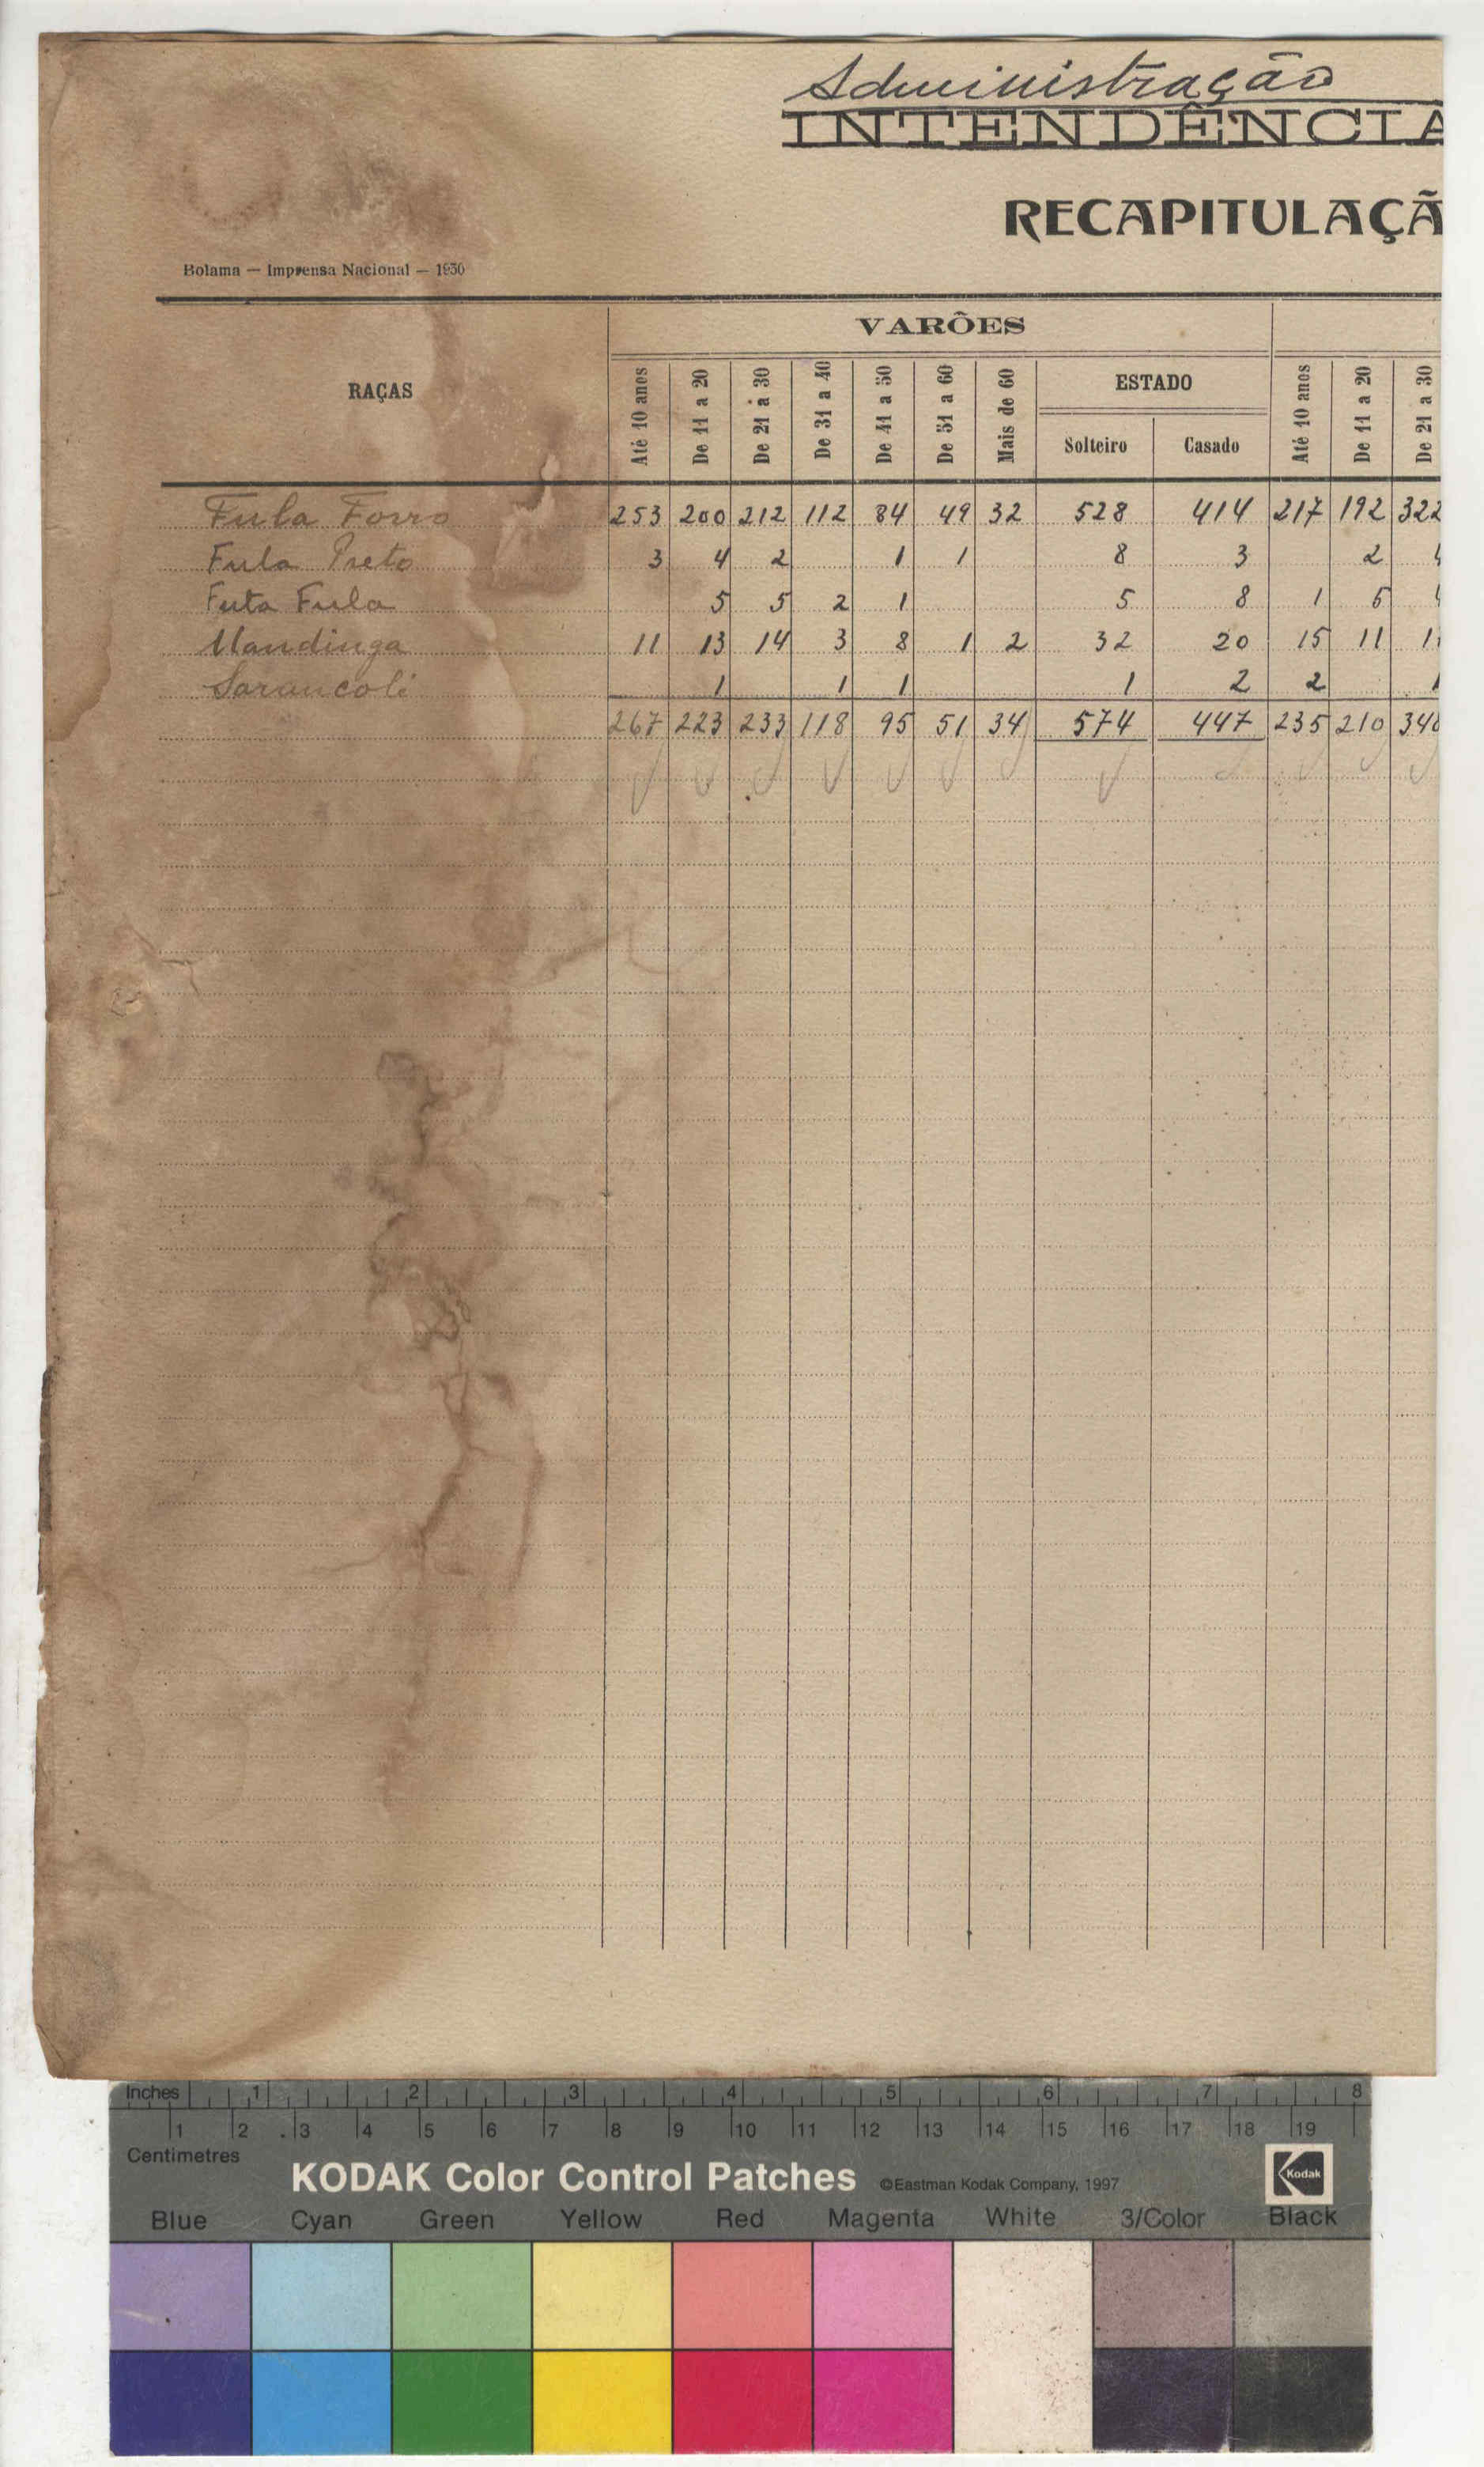 Administração
INTENDÊNCIA
RECAPITULAÇÃ
Bolama — Imprensa Nacional — 1930
RAÇAS
VARÕES
Até 10 anos De 11 a 20 De 21 a 30 De 31 a 40 De 41 a 50 De 51 a 60 Mais de 60 ESTADO Até 10 anos De 11 a 20 De 21 a 30
Solteiro Casado
Fula Forro 253 200 212 112 84 49 32 528 414 217 192 322
Fula Preto 3 4 2 1 1 8 3 2
Futa Fula 5 5 2 1 5 8 1 5
Mandinga 11 13 14 3 8 1 2 32 20 15 11
Saracoli 1 1 1 1 2 2
267 223 233 118 95 51 34 574 447 235 210
Inches 1 2 3 4 5 6 7 8
1 2 3 4 5 6 7 8 9 10 11 12 13 14 15 16 17 18 19
Centimetres
KODAK Color Control Patches ©Eastman Kodak Company, 1997 Kodak
Blue Cyan Green Yellow Red Magenta White 3/Color Black